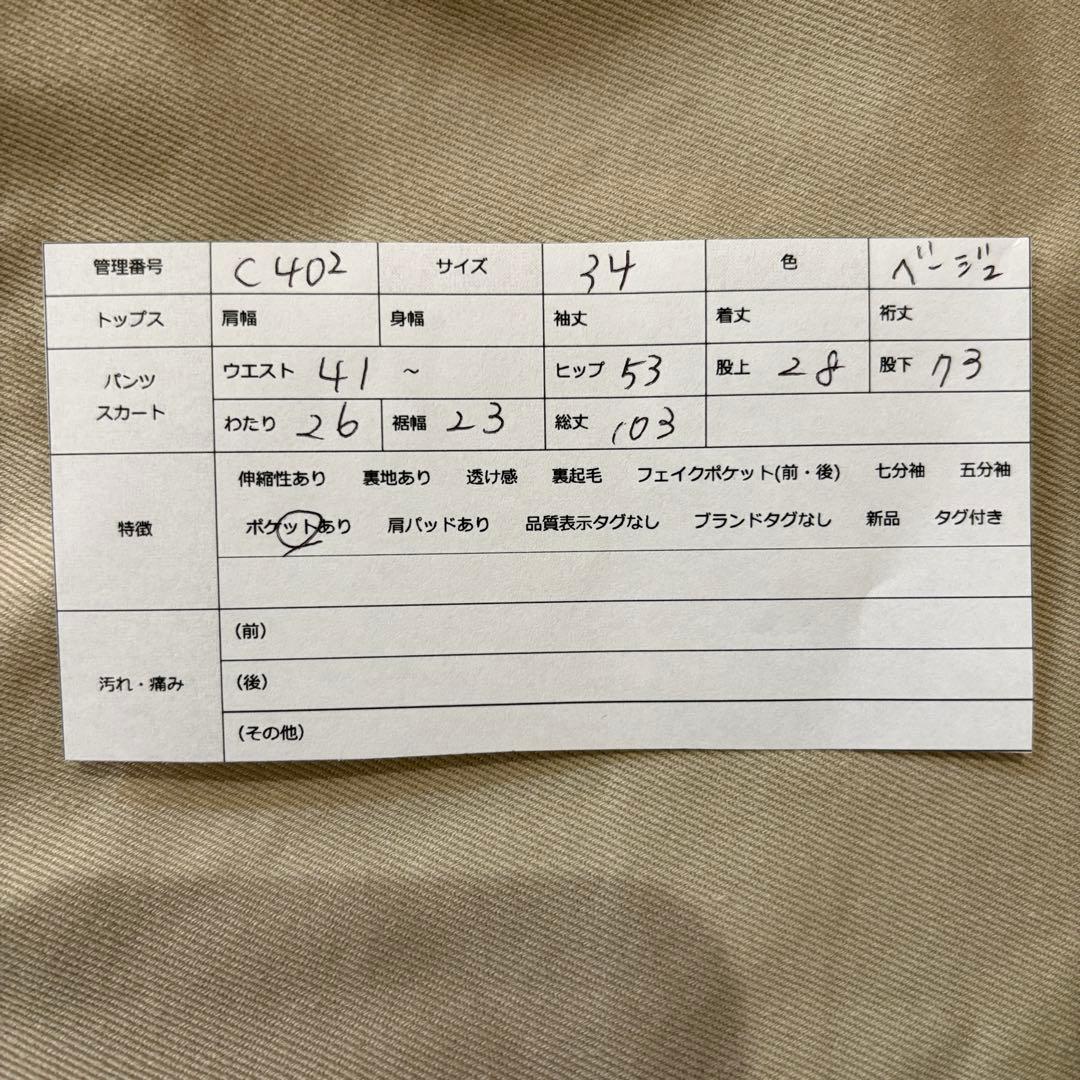 管理番号 C402 サイズ 34 色 ベージュ
トップス 肩幅 身幅 袖丈 着丈 裄丈
パンツ スカート ウエスト 41 ~ ヒップ 53 股上 28 股下 73
わたり 26 裾幅 23 総丈 103
特徴 伸縮性あり 裏地あり 透け感 裏起毛 フェイクポケット(前・後) 七分袖 五分袖
ポケットあり 肩パッドあり 品質表示タグなし ブランドタグなし 新品 タグ付き
汚れ・痛み (前)
(後)
(その他)